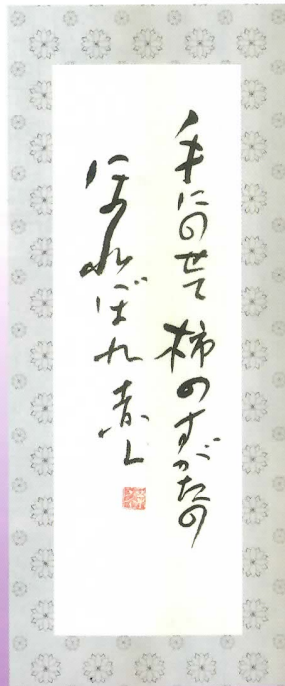 手にのせて柿のすがたの
ほればれ赤し